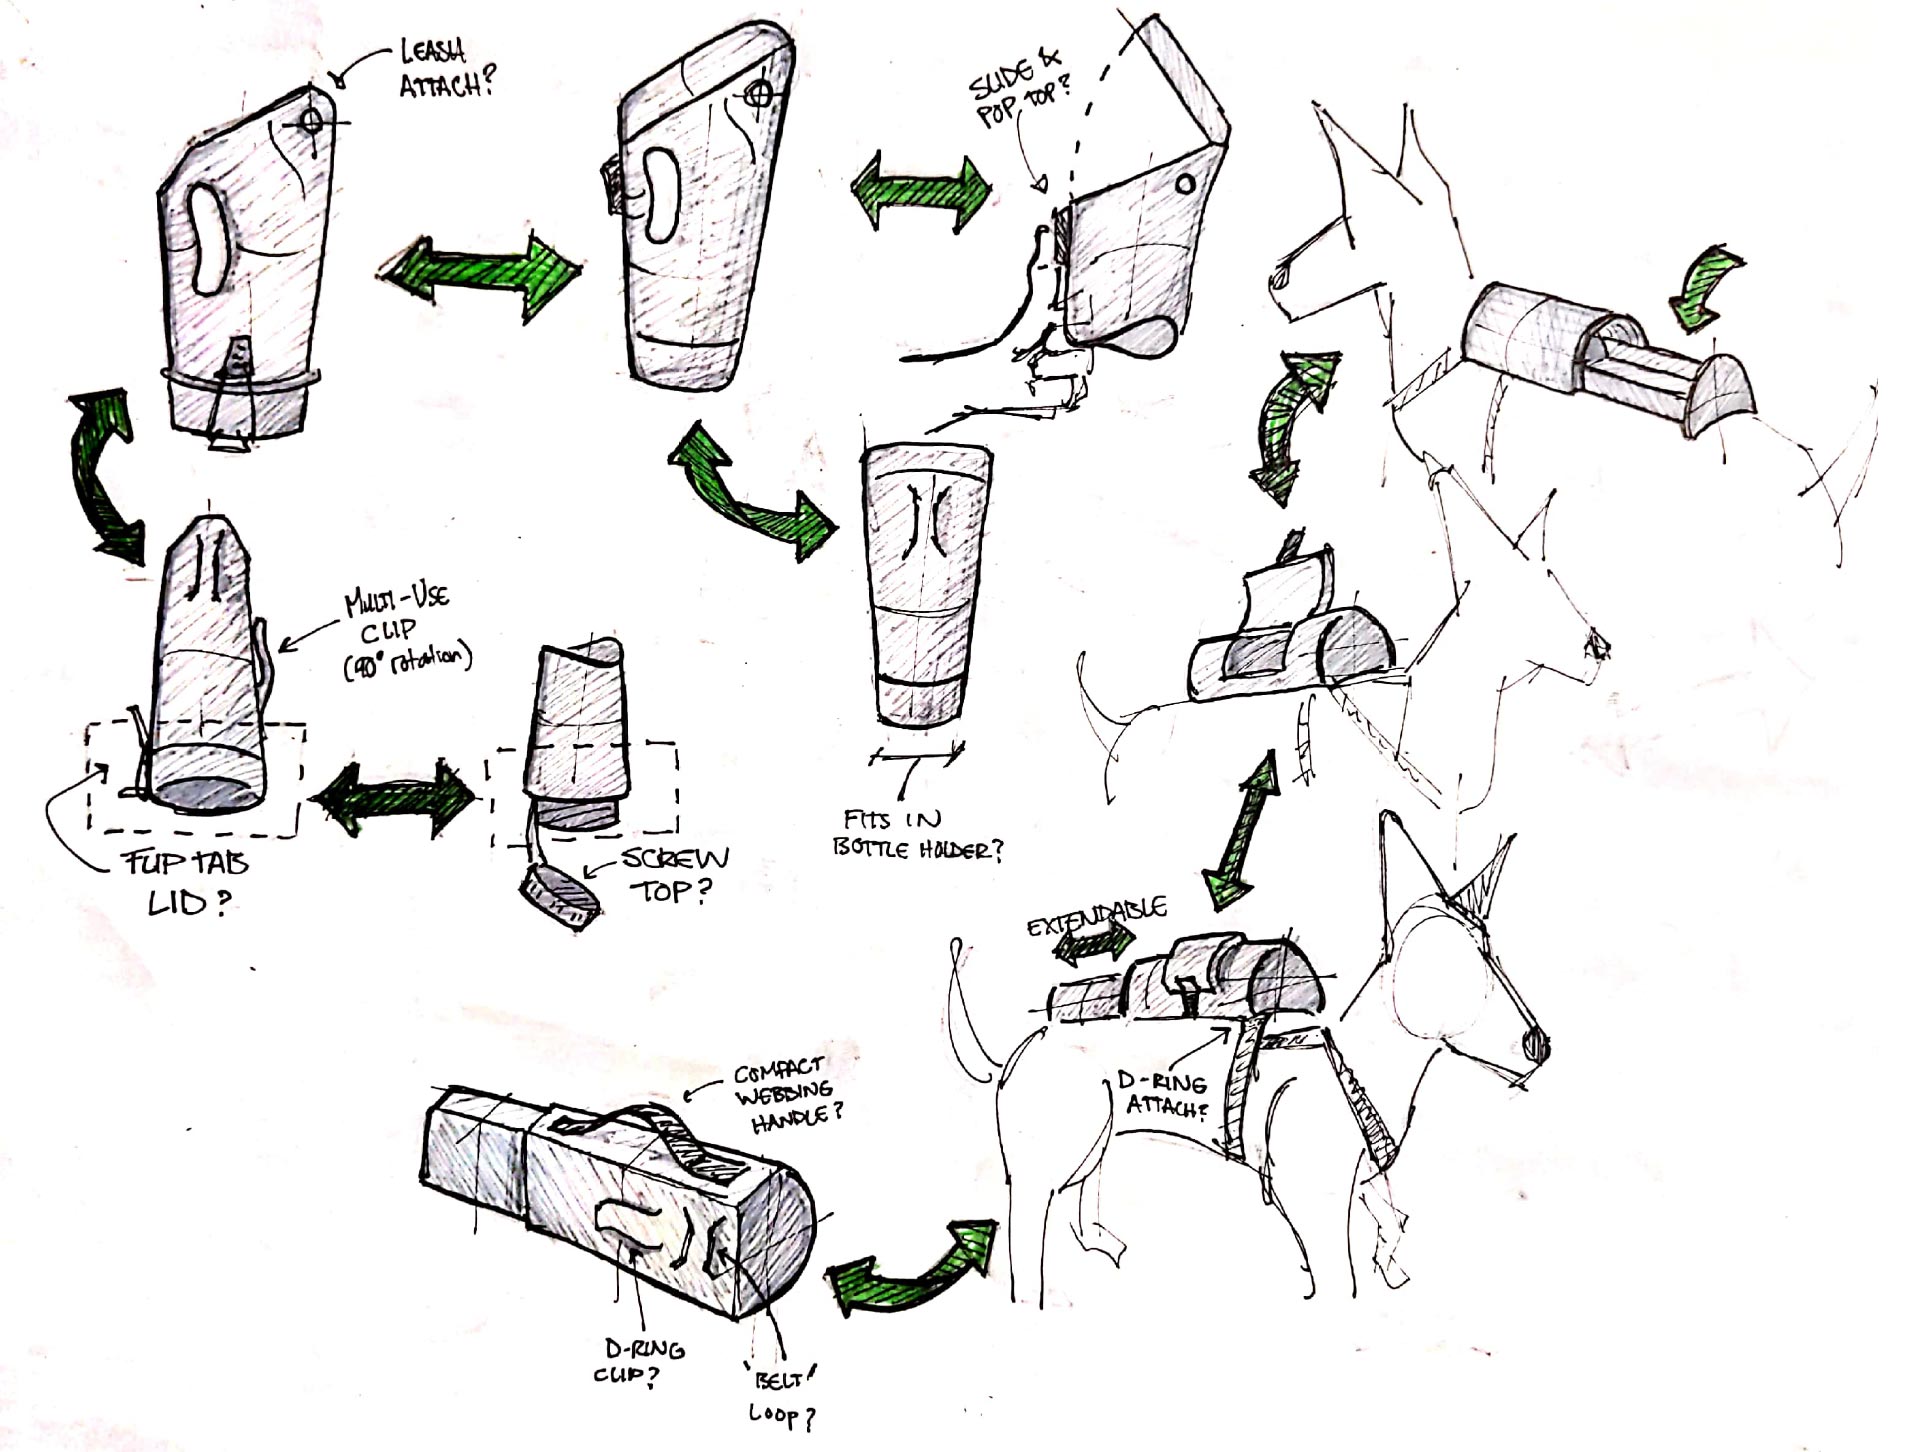 LEASH
ATTACH?
SLIDE &
POP TOP?
MULTI-USE
CLIP
(90° rotation)
FLIP TAB
LID?
SCREW
TOP?
FITS IN
BOTTLE HOLDER?
EXTENDABLE
D-RING
ATTACH?
COMPACT
WEBBING
HANDLE?
D-RING
CLIP?
'BELT'
LOOP?